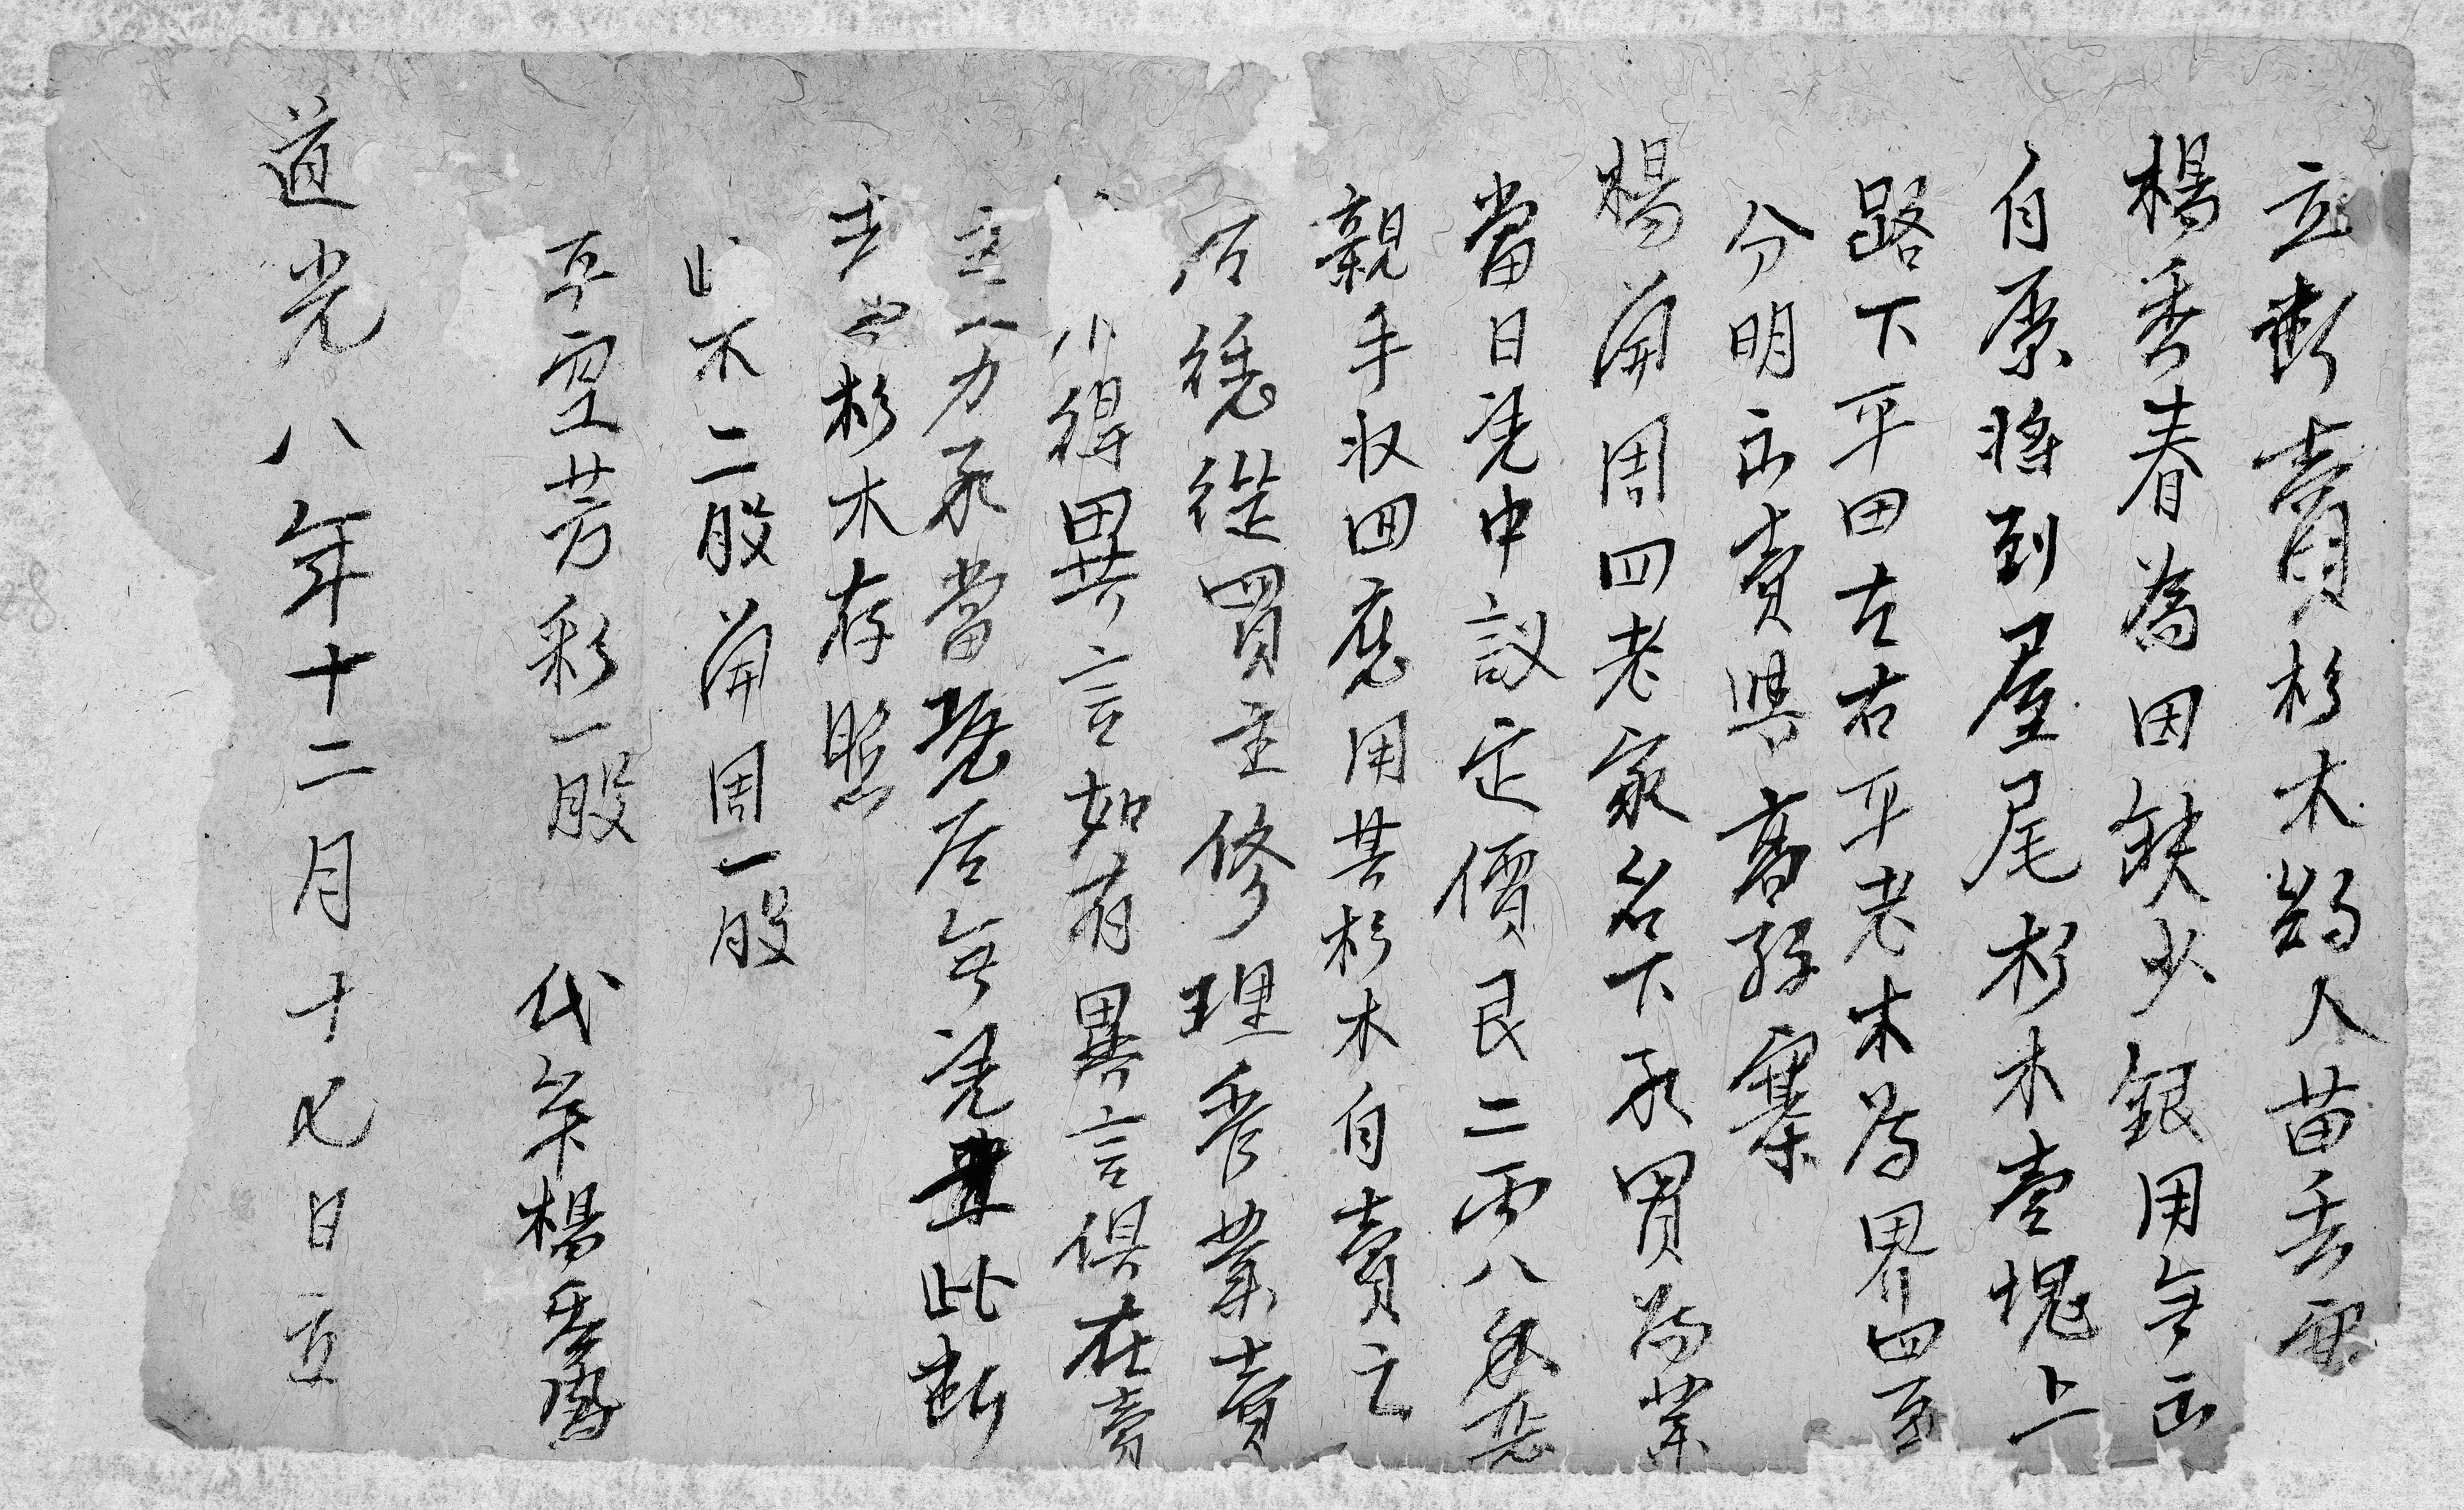 立断賣杉木約人苗丢
楊秀春為因缺少銀用無出
自愿將到屋尾杉木壹塊上
路下平田左右平老木為界四至
分明出賣與高孖寨
楊開周四老家名下承買為業
當日凴中議定價艮二両八錢
親手収回應用其杉木自賣之
后穏從買主修理管業賣
不得異言如有異言俱在賣
主一力承當恐后無凴立此断
賣 杉木存照
此木二股開周一股
平空芳彩一股 代筆楊秀
道光八年十二月十七日立